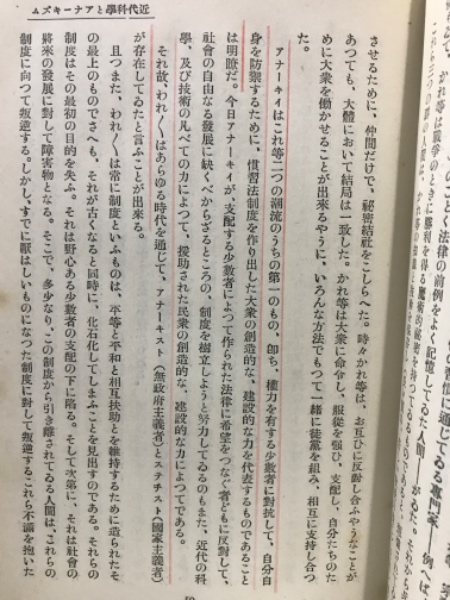 近代科學とアナーキズム
させるために、仲間だけで、秘密結社をこしらへた。時々かれ等は、お互ひに反對し合ふやうなことが
あつても、大體において結局は一致した。かれ等は大衆に命令し、服從を强ひ、支配し、自分たちのた
めに大衆を働かせることが出來るやうに、いろんな方法でもつて一緖に徒黨を組み、相互に支持し合つ
た。
アナーキイはこれ等二つの潮流のうちの第一のもの、卽ち、權力を有する少數者に對抗して、自分自
身を防禦するために、慣習法制度を作り出した大衆の創造的な、建設的な力を代表するものであること
は明瞭だ。今日アナーキイが、支配する少數者によつて作られた法律に希望をつなぐ者どもに反對して、
社會の自由なる發展に缺くべからざるところの、制度を樹立しようと努力してゐるのもまた、近代の科
學、及び技術の凡べての力によつて、援助された民衆の創造的な、建設的な力によつてである。
それ故、われ〳〵はあらゆる時代を通じて、アナキスト（無政府主義者）とステチスト（國家主義者）
が存在してゐたと言ふことが出來る。
且つまた、われ〳〵は常に制度といふものは、平等と平和と相互扶助とを維持するために造られたそ
の最上のものでさへも、それが古くなると同時に、化石化してしまふことを見出すのである。それらの
制度はその最初の目的を失ふ。それは野心ある少數者の支配の下に陷る。そして次第に、それは社會の
將來の發展に對して障害物となる。そこで、多少なり、この制度から引き離されてゐる人間は、これらの
制度に向つて叛逆する。しかし、すでに厭はしいものになつた制度に對して叛逆するこれら不滿を抱いた